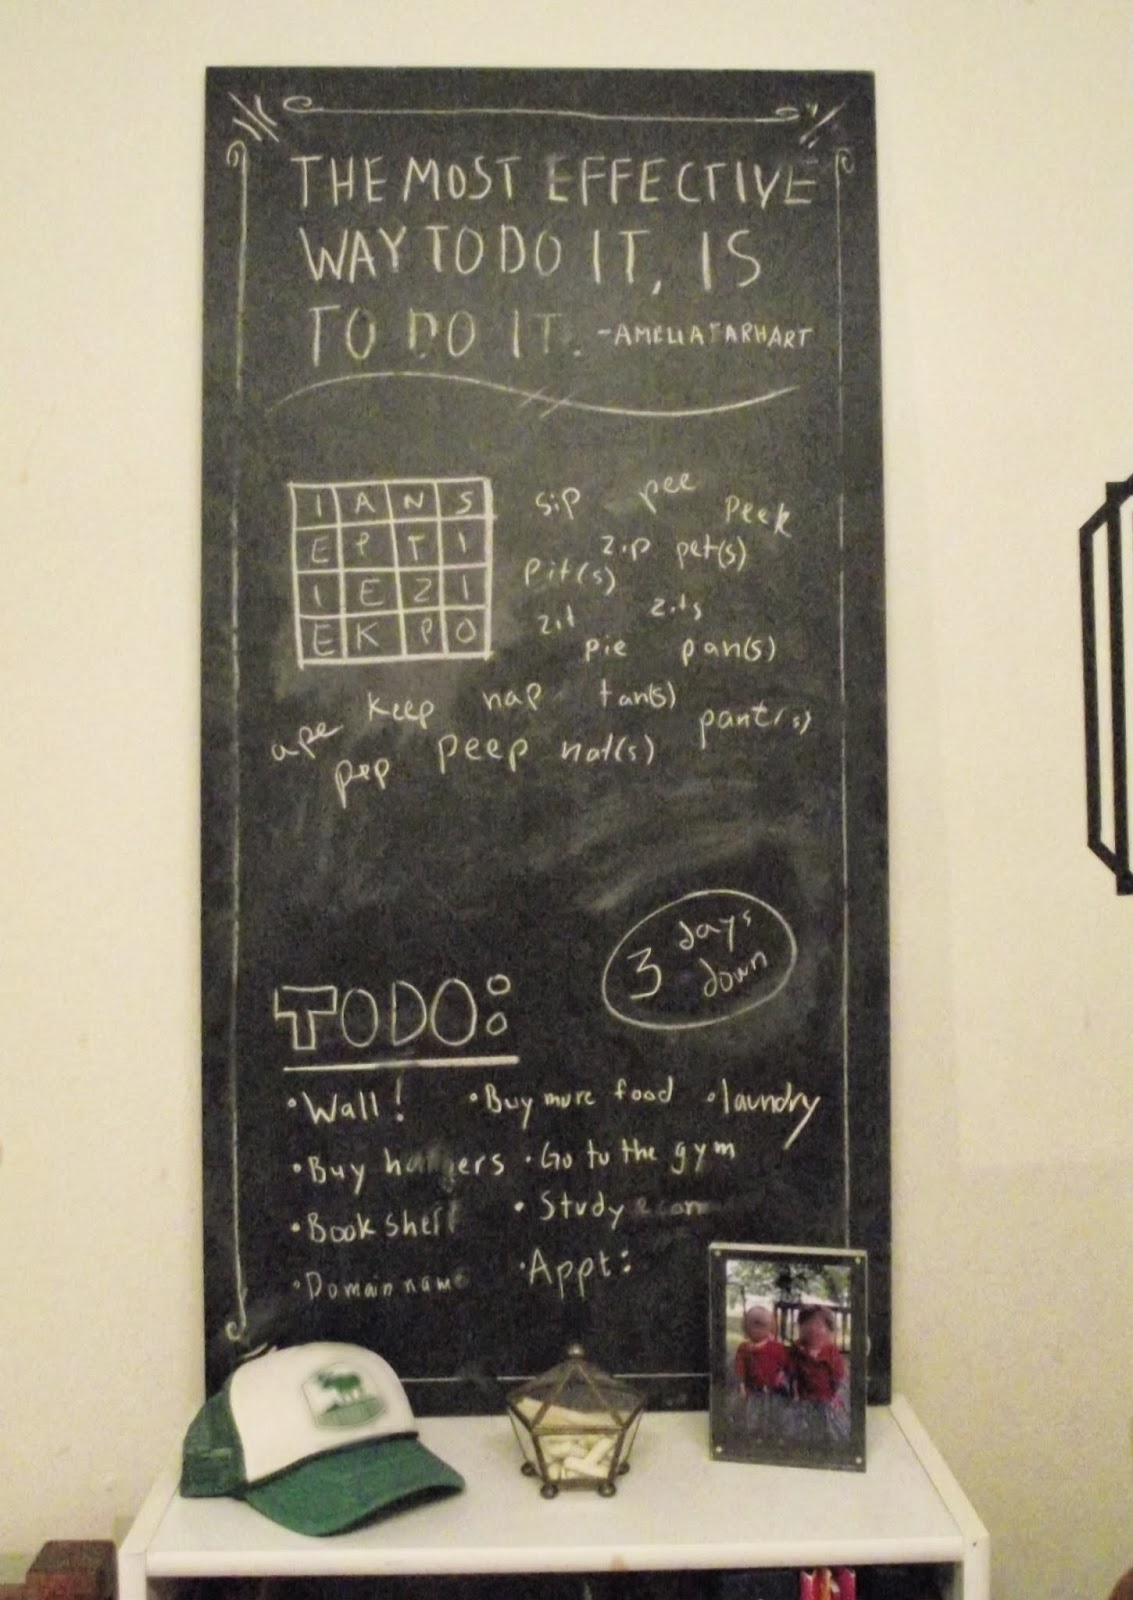 THE MOST EFFECTIVE
WAY TO DO IT, IS
TO DO IT. -AMELIA EARHART
I A N S
E P T I
I E Z I
E K P O
sip pee peek
zip pet(s)
pit(s)
zit zits
pie pan(s)
keep nap tan(s)
ape pant(s)
pep peep nat(s)
3 days
down
TODO:
•Wall! •Buy more food •laundry
•Buy hangers •Go to the gym
•Book shelf •Study econ
•Domain name •Appt: